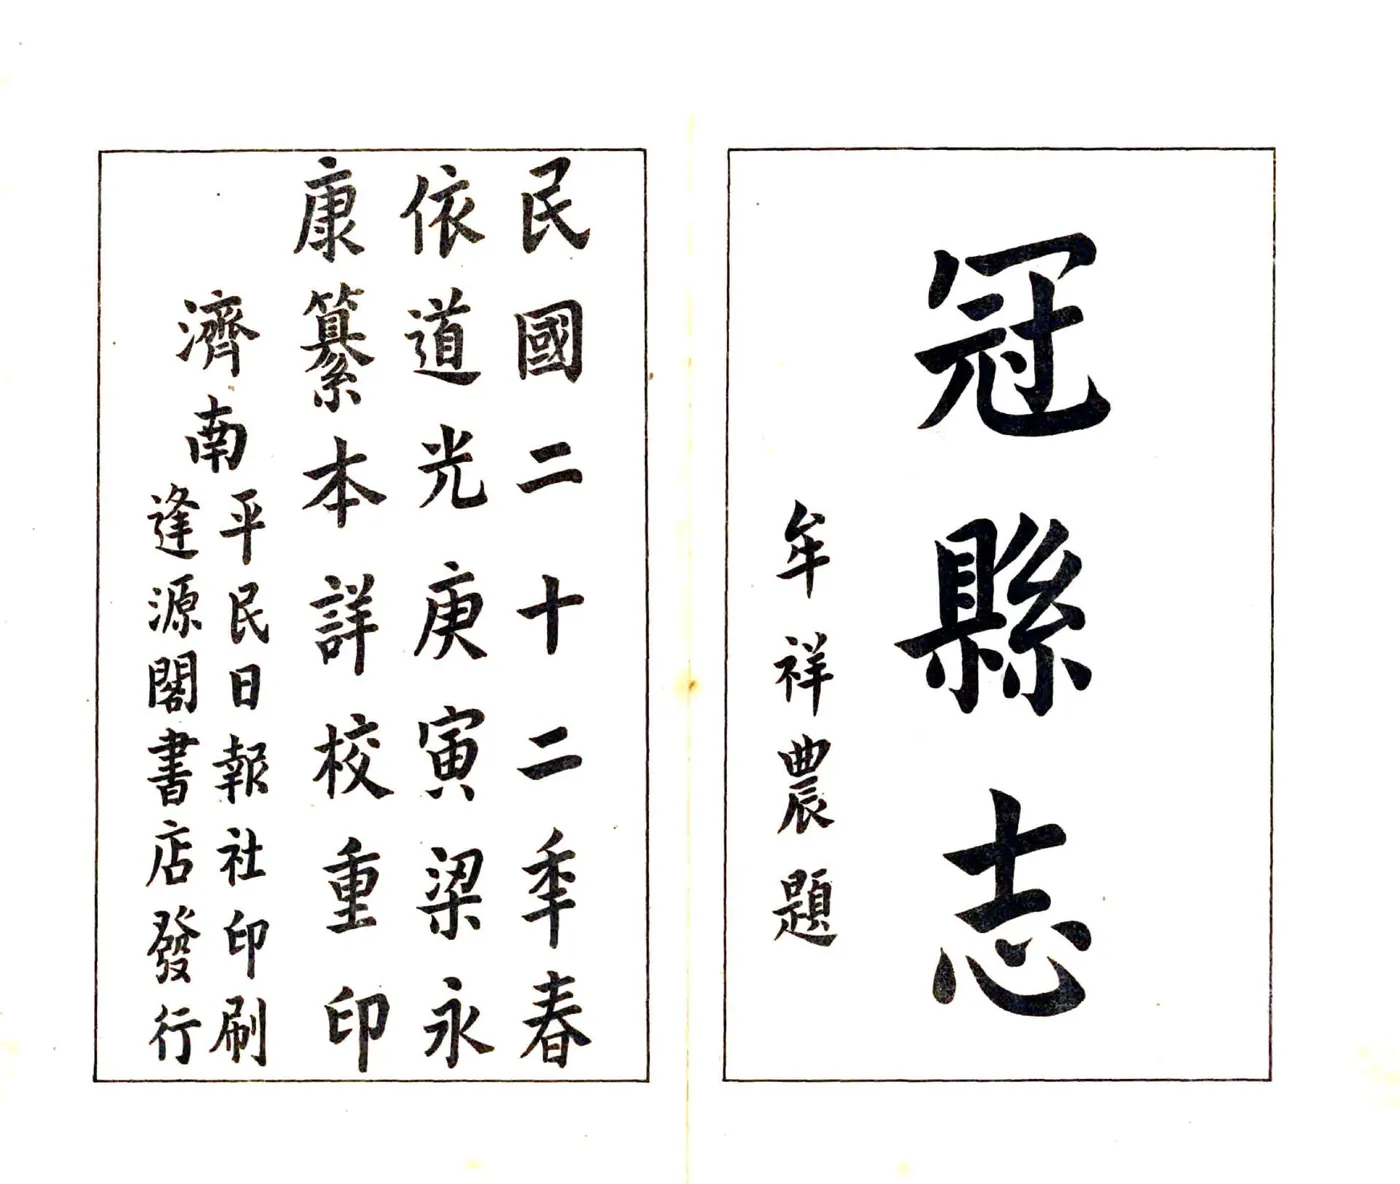 冠縣志
牟祥農題
民國二十二年春
依道光庚寅梁永
康纂本詳校重印
濟南
平民日報社印刷
逢源閣書店發行